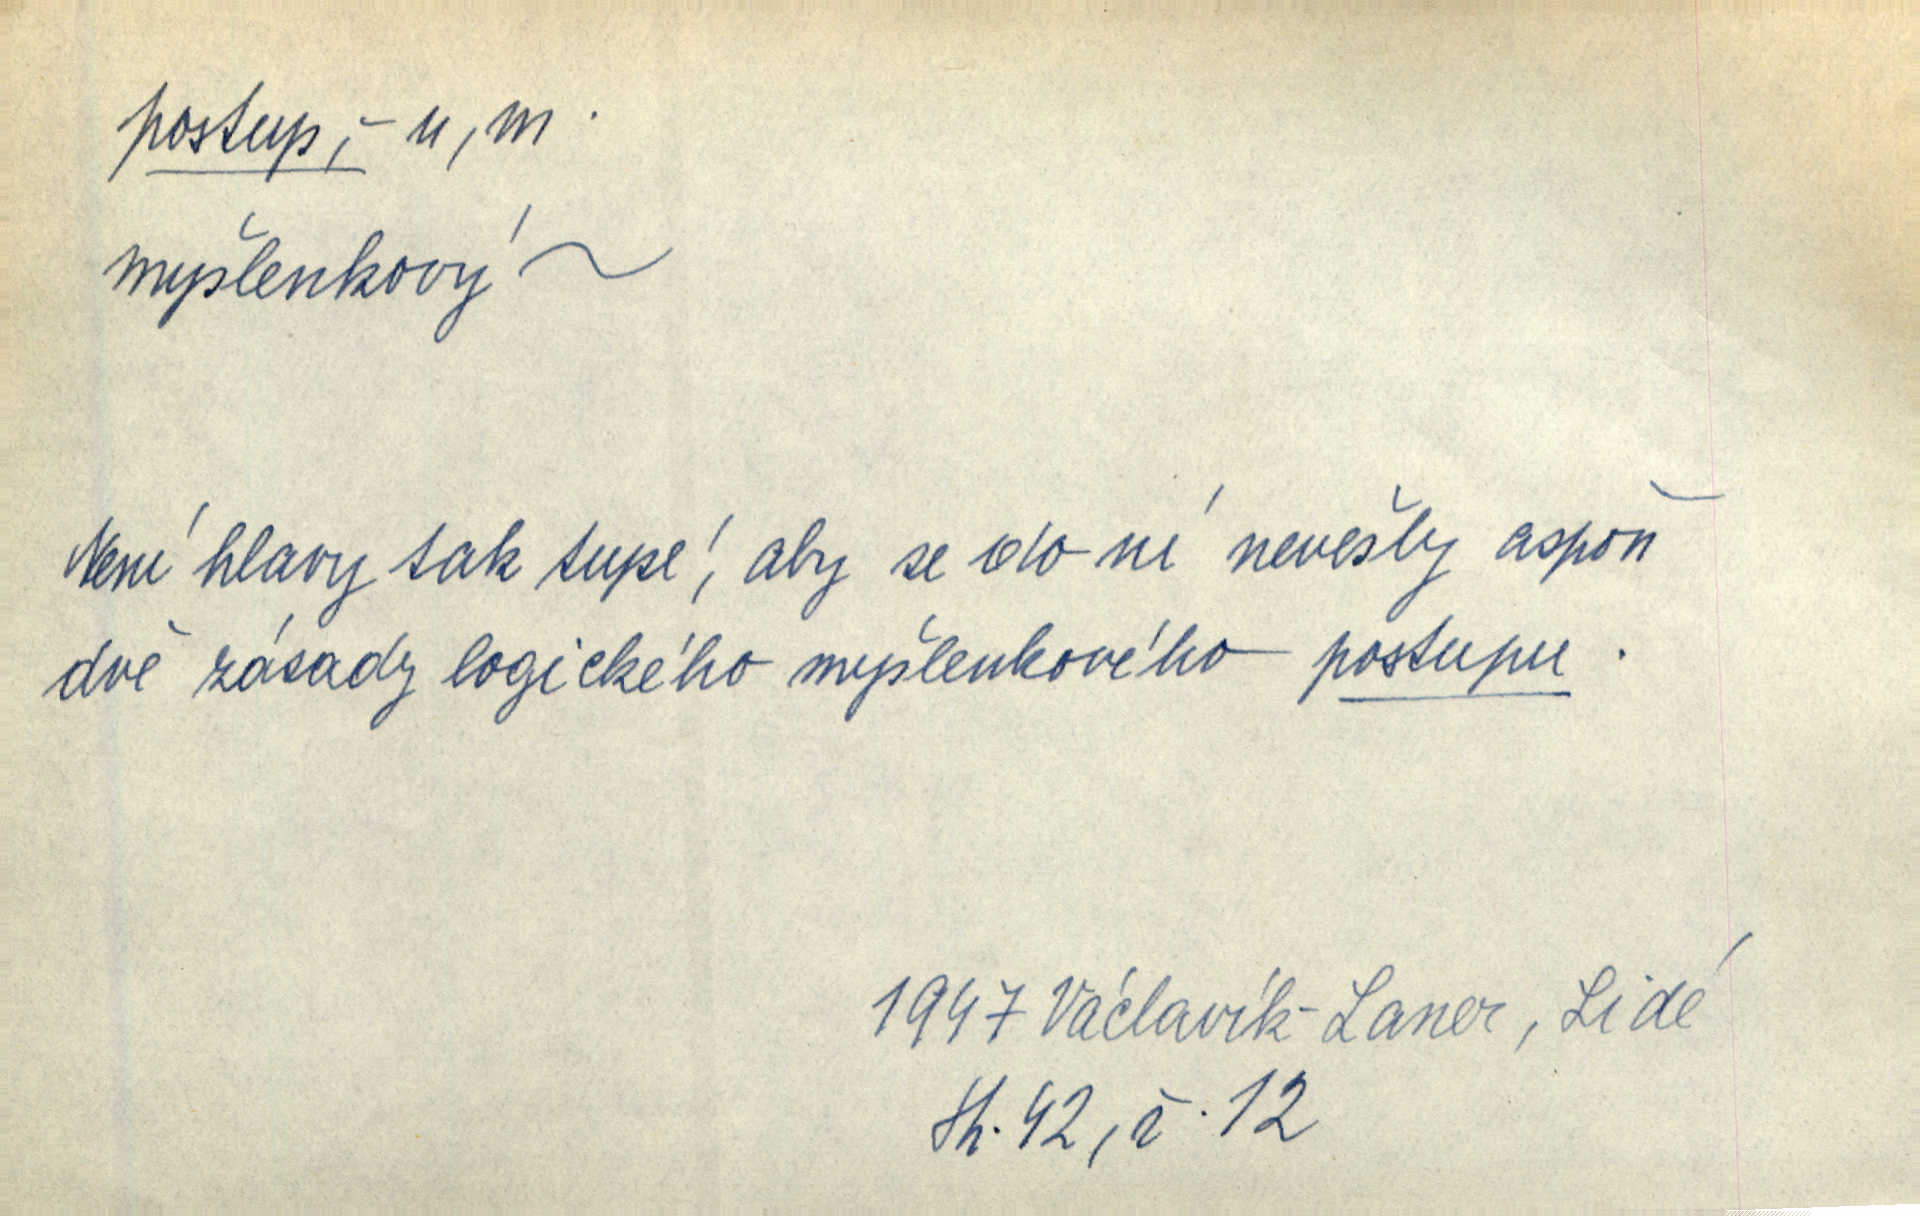 postup, -u, m.
myšlenkový ~
Není hlavy tak tupé, aby se do ní nevešly aspoň
dvě zásady logického myšlenkového postupu.
1947 Václavík-Laner, Lidé
42, č. 12